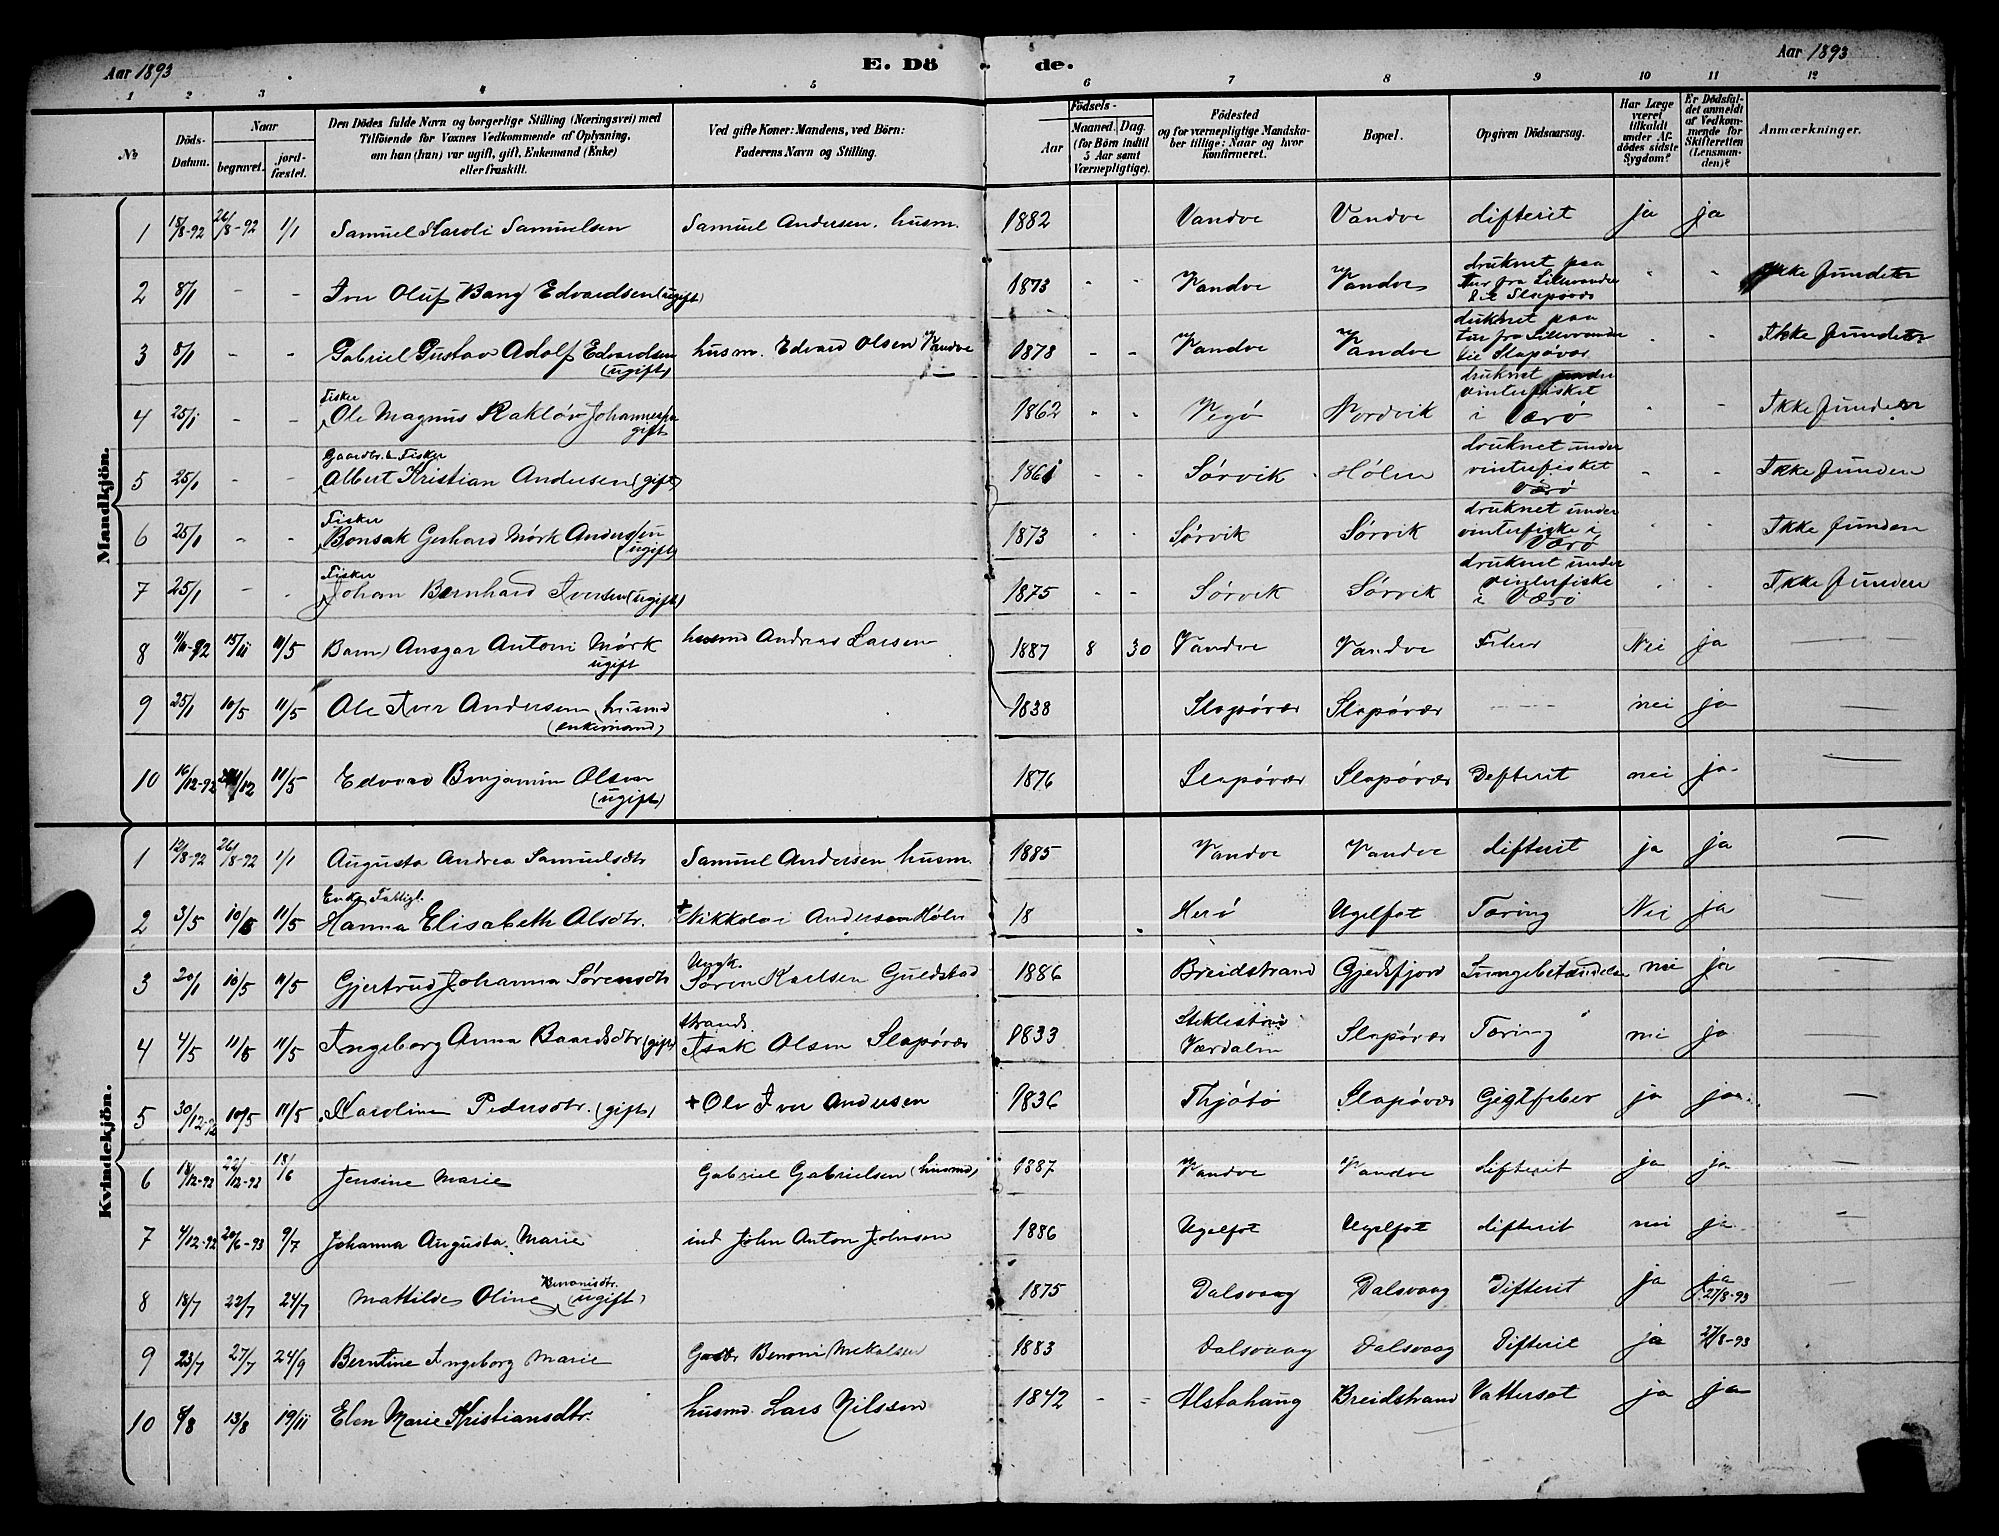 Aar 1893
E. Dö de.
Aar 1893
1 2 3 4 5 6 7 8 9 10 11 12
No
Döds-Datum.
Naar
begravet.
jordfæstet.
Den Dödes fulde Navn og borgerlige Stilling (Næringsvei) med
Tilföiende for Voxnes Vedkommende af Oplysning,
om han (hun) var ugift, gift, Enkemand (Enke)
eller fraskilt.
Ved gifte Koner: Mandens, ved Börn:
Faderens Navn og Stilling.
Födsels-
Aar
Maaned. Dag.
(for Börn indtil
5 Aar samt
Værnepligtige).
Födested
og for værnepligtige Mandska-
ber tillige: Naar og hvor
konfirmeret.
Bopæl.
Opgiven Dödsaarsag.
Har Læge
været
tilkaldt
under Af-
dödes sidste
Sygdom?
Er Dödsfal-
det anmeldt
af Vedkom-
mende for
Skifteretten
(Lensman-
den)?
Anmærkninger.
Mandkjön.
1 18/8-92 26/8-92 1/1 Samuel Karoli Samuelsen Samuel Andersen, husm. 1882 Vandve Vandve difterit ja ja
2 8/1 - - Iver Oluf Bang Edvardsen (ugift) 1873 - - Vandve Vandve druknet paa tur fra Lillevandve til Slapøvær " " Ikke funden
3 8/1 - - Gabriel Gustav Adolf Edvardsen (ugift) husm. Edvard Olsen Vandve 1878 - - Vandve Vandve druknet paa tur fra Lillevandve til Slapøvær " " Ikke funden
4 25/1 - - Fisker Ole Magnus Rakløv Johannesen gift 1862 " " Vegø Nordvik druknet under vinterfisket i Værø - - Ikke funden
5 25/1 - - Gaardbr. & Fisker Albert Kristian Andersen (gift) 1861 - - Sørvik Holm druknet under vinterfisket Værø - - Ikke funden
6 25/1 - - Fisker Bonsak Gerhard Mørk Andersen (ugift) 1873 - - Sørvik Sørvik druknet under vinterfiske i Værø " " Ikke funden
7 25/1 - - Fisker Johan Bernhard Iversen (ugift) 1875 - - Sørvik Sørvik druknet under vinterfiske i Værø " " Ikke funden
8 15/11 11/5 Barn Ansgar Antoni Mørk ugift husmd Andreas Larsen 1887 8 30 Vandve Vandve Feber Nei ja —
9 25/1 10/5 11/5 Ole Iver Andersen, husmd (enkemand) 1838 Slapøvær Slapøvær - - - - nei ja —
10 16/12-92 11/5 Edvard Benjamin Olsen (ugift) 1876 Slapøvær Slapøvær Difterit nei ja —
Kvindekjön.
1 12/8-92 26/8-92 1/1 Augusta Andrea Samuelsdtr Samuel Andersen husm. 1885 Vandve Vandve difterit ja ja —
2 3/5 10/5 11/5 Enke, Fattigl. Hanna Elisabeth Olsdtr. + Nikkolai Andersen Holm 18 Herø Ugelfot Tæring Nei ja —
3 20/1 10/5 11/5 Gjertrud Johanna Sørensdtr Ungk. Søren Karlsen Guldstad 1886 Breidstrand Gjedsfjord Lungebetændelse nei ja —
4 4/5 11/5 11/5 Ingeborg Anna Baardsdtr (gift) strands. Isak Olsen Slapøvær 1833 Stiklestad Værdalen Slapøvær Tæring nei ja —
5 30/12-92 10/5 11/5 Karoline Pedersdtr. (gift) + Ole Iver Andersen 1836 Thjøtø Slapøvær Gigtfeber ja ja —
6 18/12-92 22/12-92 18/6 Jensine Marie Gabriel Gabrielsen (husmd) 1887 Vandve Vandve difterit ja ja —
7 4/12-92 20/6-93 9/7 Johanna Augusta Marie ind John Anton Johnsen 1886 Ugelfot Ugelfot difterit nei ja —
8 18/7 22/7 24/7 Mathilde Oline Benonisdtr. (ugift) 1875 Dalsvaag Dalsvaag Difterit ja ja 27/8-93 —
9 23/7 27/7 24/9 Berntine Ingeborg Marie Gaardbr Benoni Mikalsen 1883 Dalsvaag Dalsvaag Difterit ja 27/8-93
10 8/8 13/8 19/11 Elen Marie Kristiansdtr. husmd. Lars Nilssen 1842 - - Alstahaug Breidstrand Vattersot ja ja